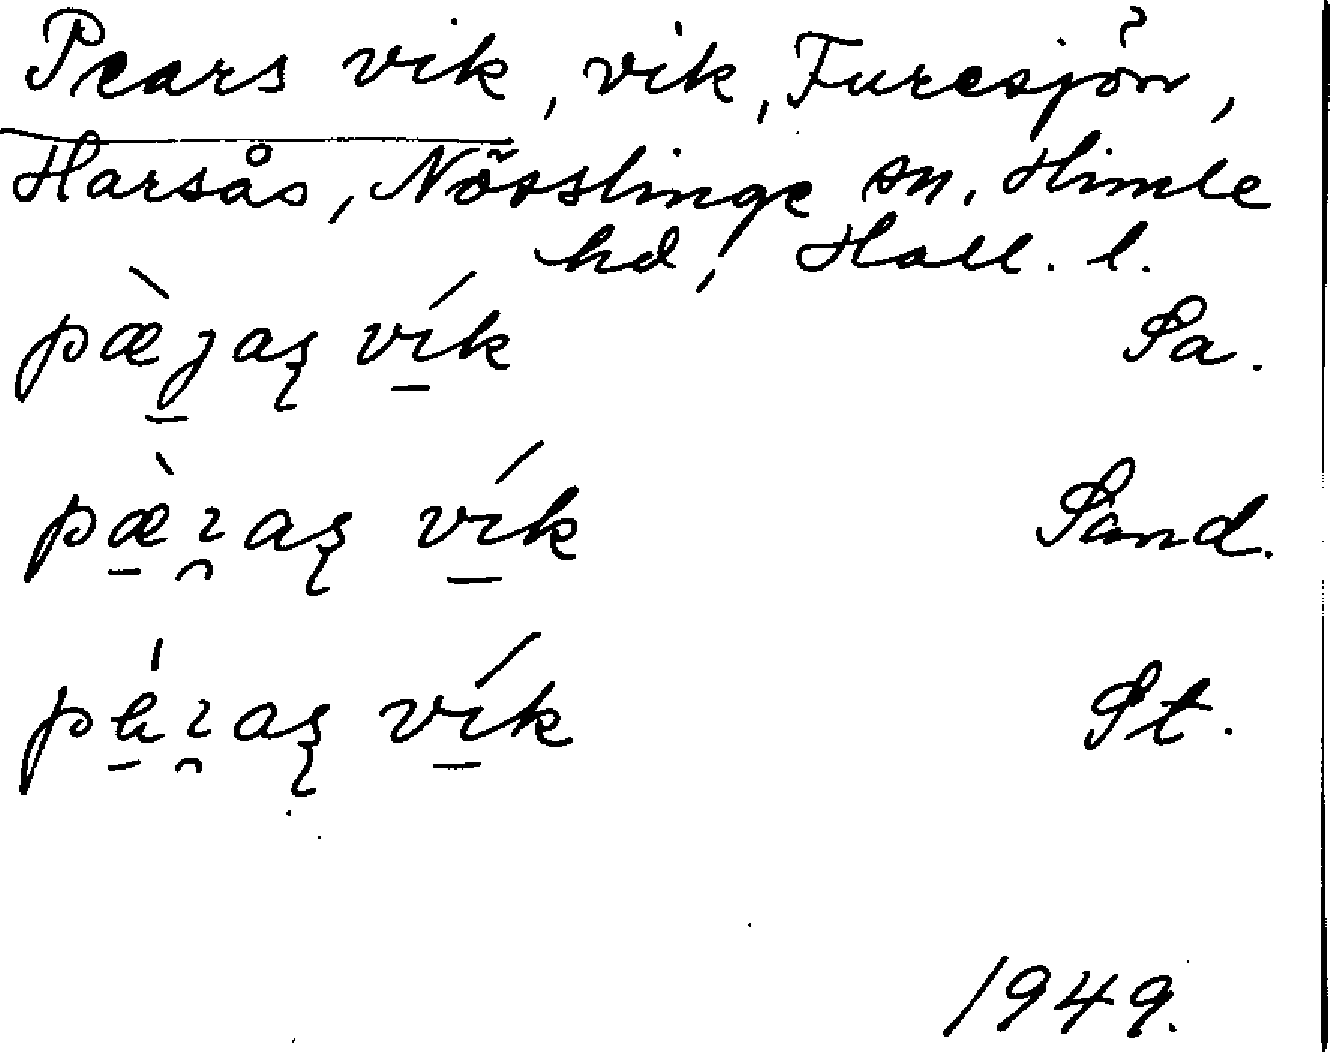 Pears vik, vik, Furesjön,
Harsås, Nösslinge sn. Himle
hd, Hall. l.
pæ̀ȷas̨ vík Sa.
pæ̀ɿas̨ vík Sand.
vík St.
1949.